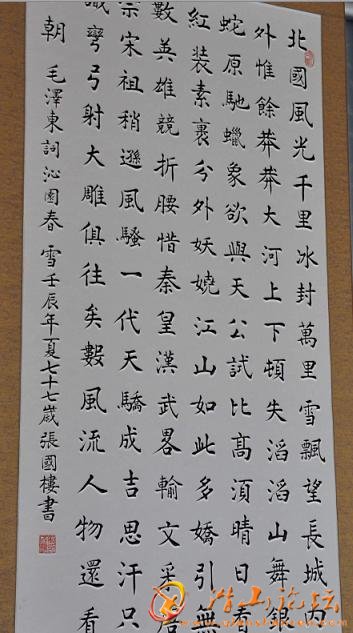 北國風光千里冰封萬里雪飄望長城内
外惟餘莽莽大河上下頓失滔滔山舞銀
蛇原馳蠟象欲與天公試比高湏晴日看
紅装素裹兮外妖嬈江山如此多嬌引無
數英雄競折腰惜秦皇漢武畧輸文采唐
宗宋祖稍遜風騷一代天驕成吉思汗只
識彎弓射大雕俱往矣數風流人物還看
朝 毛澤東詞沁園春雪壬辰年夏七十七歲張國樓書
潜山论坛